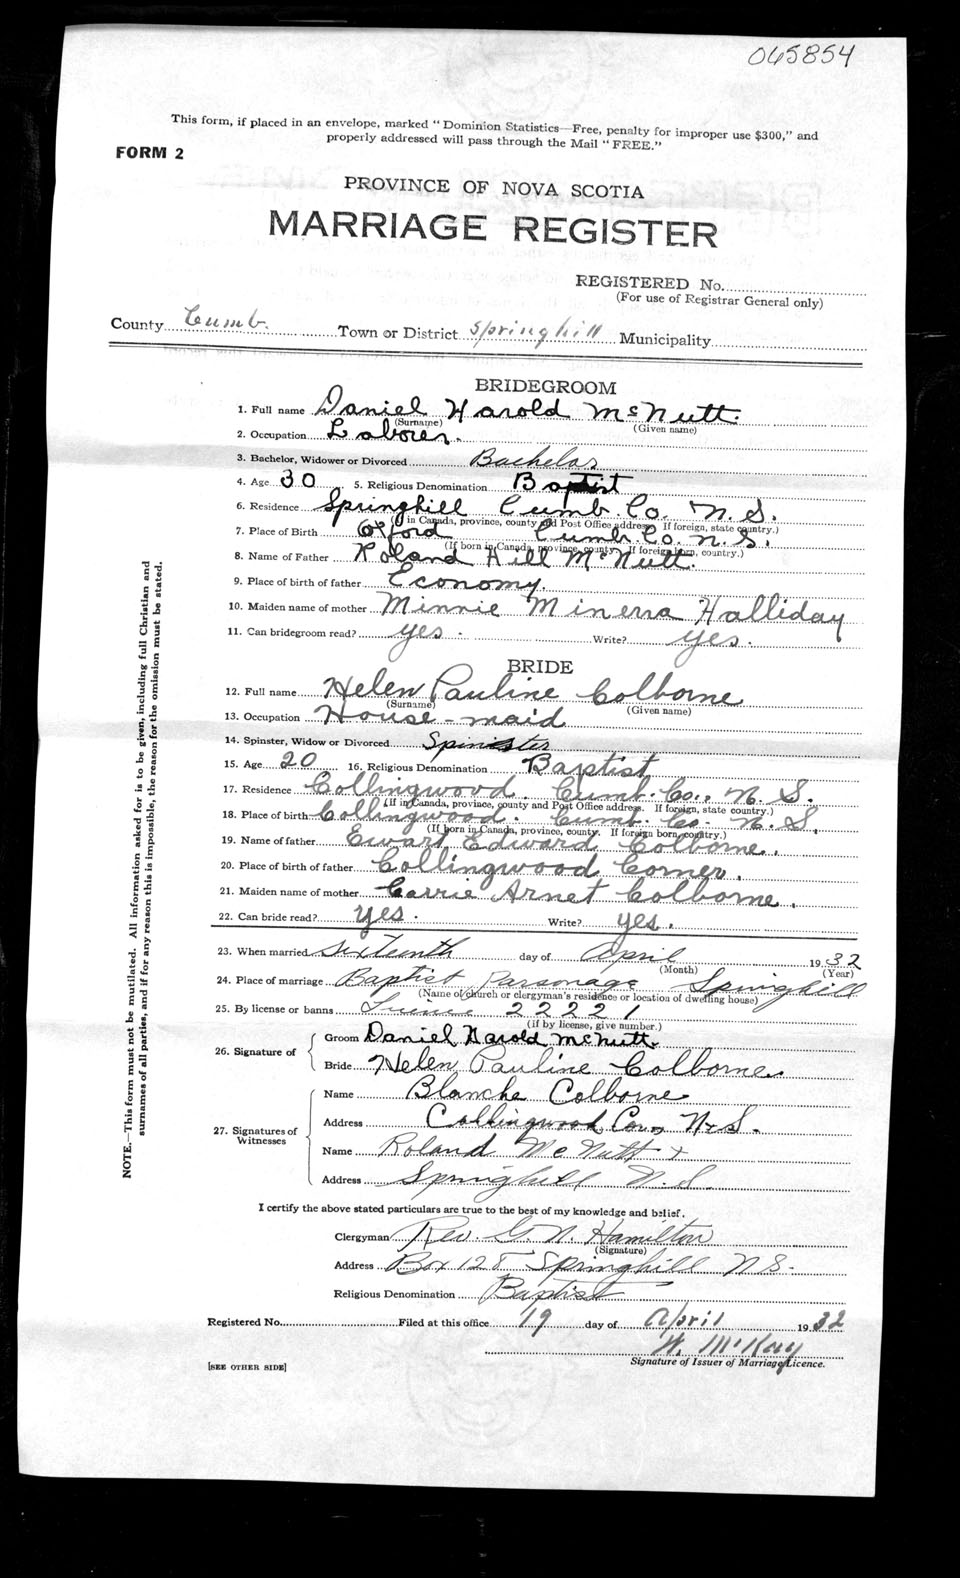 065854
This form, if placed in an envelope, marked "Dominion Statistics—Free, penalty for improper use $300," and
properly addressed will pass through the Mail "FREE."
FORM 2
PROVINCE OF NOVA SCOTIA
MARRIAGE REGISTER
REGISTERED No.
(For use of Registrar General only)
County Cumb. Town or District Springhill Municipality
BRIDEGROOM
1. Full name Daniel Harold McNutt.
(Surname) (Given name)
2. Occupation Laborer.
3. Bachelor, Widower or Divorced Bachelor
4. Age 30 5. Religious Denomination Baptist
6. Residence Springhill Cumb. Co. N. S.
(If in Canada, province, county and Post Office address. If foreign, state country.)
7. Place of Birth Oxford Cumb. Co. N. S.
(If born in Canada, province, county. If foreign born, country.)
8. Name of Father Roland Hill McNutt.
9. Place of birth of father Economy.
10. Maiden name of mother Minnie Minerra Halliday
11. Can bridegroom read? yes. Write? yes.
BRIDE
12. Full name Helen Pauline Colborne
(Surname) (Given name)
13. Occupation House-maid
14. Spinster, Widow or Divorced Spinster
15. Age 20 16. Religious Denomination Baptist
17. Residence Collingwood. Cumb. Co., N. S.
(If in Canada, province, county and Post Office address. If foreign, state country.)
18. Place of birth Collingwood. Cumb. Co. N. S.
(If born in Canada, province, county. If foreign born, country.)
19. Name of father Ewart Edward Colborne.
20. Place of birth of father Collingwood Corner.
21. Maiden name of mother Carrie Arnet Colborne.
22. Can bride read? yes. Write? yes.
23. When married sixteenth day of April 1932
(Month) (Year)
24. Place of marriage Baptist Parsonage Springhill
(Name of church or clergyman's residence or location of dwelling house)
25. By license or banns License 22221
(if by license, give number.)
26. Signature of
Groom Daniel Harold McNutt.
Bride Helen Pauline Colborne.
27. Signatures of Witnesses
Name Blanche Colborne
Address Collingwood Cor., N.S.
Name Roland McNutt
Address Springhill N.S.
I certify the above stated particulars are true to the best of my knowledge and belief.
Clergyman Rev. G. N. Hamilton
(Signature)
Address Box 128 Springhill N.S.
Religious Denomination Baptist
Registered No. Filed at this office 19 day of April 1932
W. McKay
Signature of Issuer of Marriage Licence.
[SEE OTHER SIDE]
NOTE.—This form must not be mutilated. All information asked for is to be given, including full Christian and
surnames of all parties, and if for any reason this is impossible, the reason for the omission must be stated.